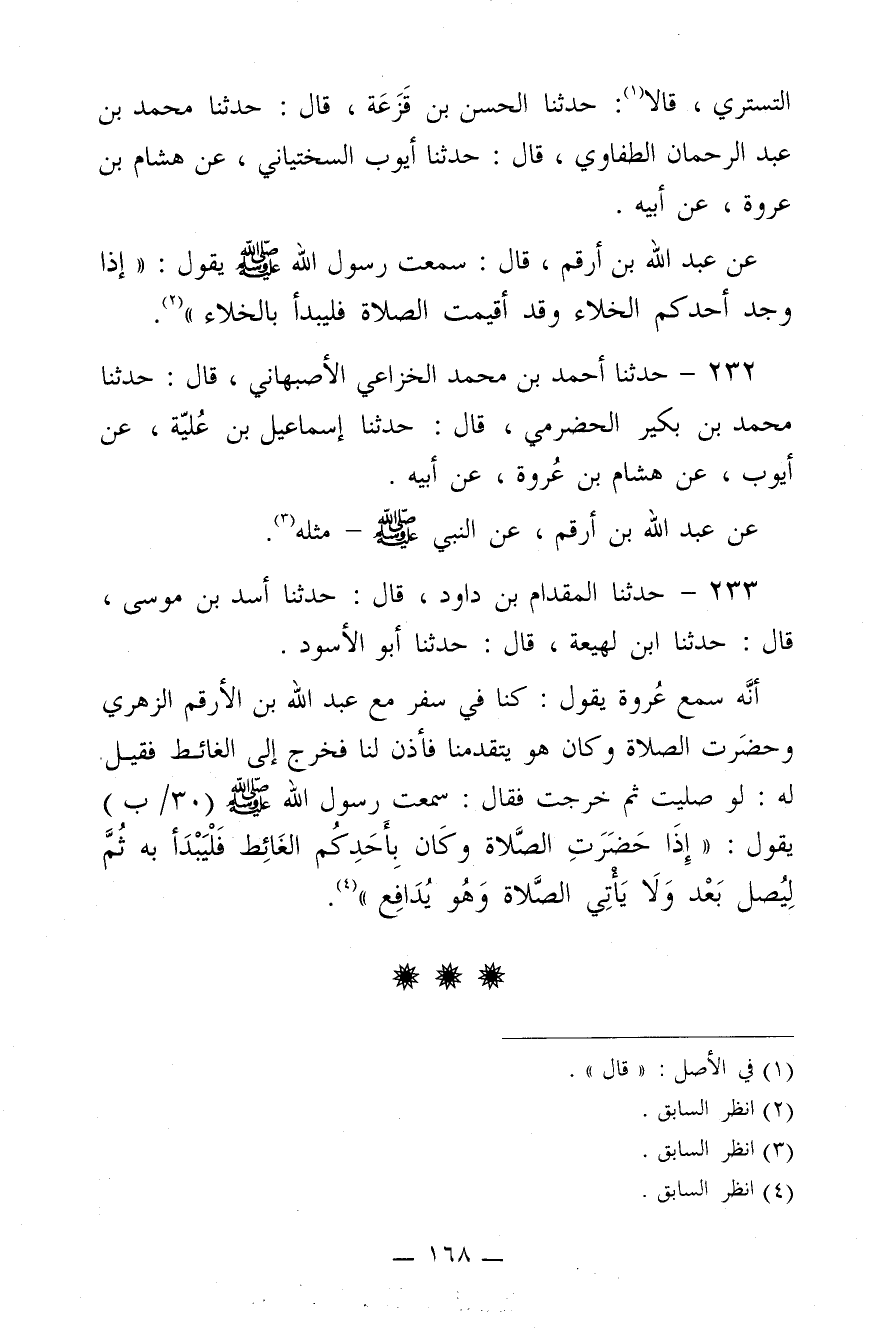 التستري ، قالا(١): حدثنا الحسن بن قَزَعَة ، قال : حدثنا محمد بن
عبد الرحمان الطفاوي ، قال : حدثنا أيوب السختياني ، عن هشام بن
عروة ، عن أبيه .
عن عبد الله بن أرقم ، قال : سمعت رسول الله ﷺ يقول : « إذا
وجد أحدكم الخلاء وقد أقيمت الصلاة فليبدأ بالخلاء »(٢).
٢٣٢ – حدثنا أحمد بن محمد الخزاعي الأصبهاني ، قال : حدثنا
محمد بن بكير الحضرمي ، قال : حدثنا إسماعيل بن عُليّة ، عن
أيوب ، عن هشام بن عُروة ، عن أبيه .
عن عبد الله بن أرقم ، عن النبي ﷺ – مثله(٣).
٢٣٣ – حدثنا المقدام بن داود ، قال : حدثنا أسد بن موسى ،
قال : حدثنا ابن لهيعة ، قال : حدثنا أبو الأسود .
أنَّه سمع عُروة يقول : كنا في سفر مع عبد الله بن الأرقم الزهري
وحضَرت الصلاة وكان هو يتقدمنا فأذن لنا فخرج إلى الغائط فقيل
له : لو صليت ثم خرجت فقال : سمعت رسول الله ﷺ (٣٠/ ب )
يقول : « إِذَا حَضَرَتِ الصَّلاة وكَان بِأَحَدِكُم الغَائِط فَلْيَبْدَأ به ثُمَّ
لِيُصل بَعْد وَلَا يَأْتِي الصَّلاة وَهُو يُدَافِع »(٤).
(١) في الأصل : « قال » .
(٢) انظر السابق .
(٣) انظر السابق .
(٤) انظر السابق .
— ١٦٨ —